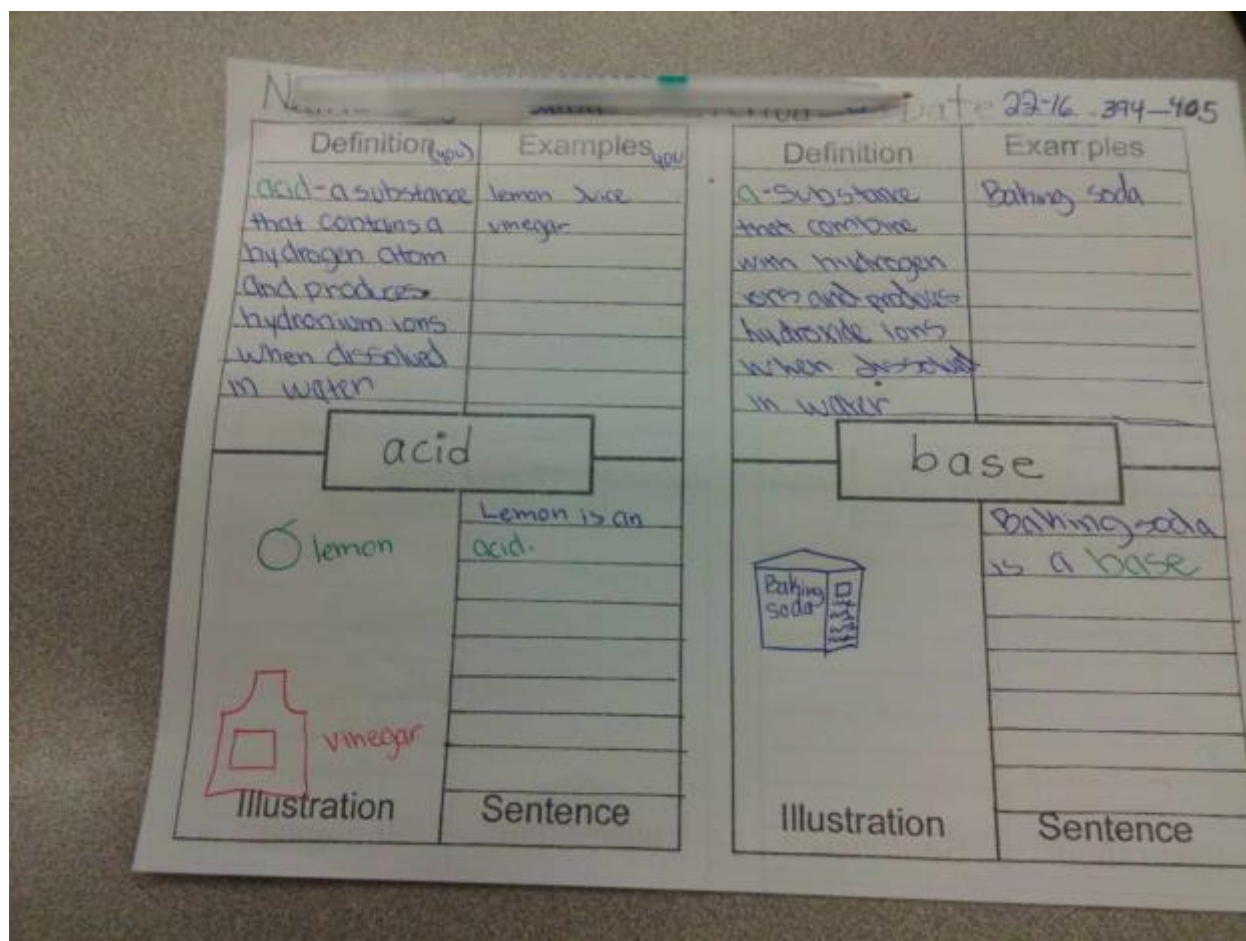 22-16 394-405
Definition (you)
Examples you
acid - a substance
that contains a
hydrogen atom
and produces
hydronium ions
when dissolved
in water
lemon Juice
vinegar
acid
lemon
vinegar
Illustration
Lemon is an
acid.
Sentence
Definition
Examples
a - Substance
that combine
with hydrogen
ions and produce
hydroxide ions
when dissolved
in water
Baking soda
base
Baking
soda
Illustration
Baking soda
is a base
Sentence